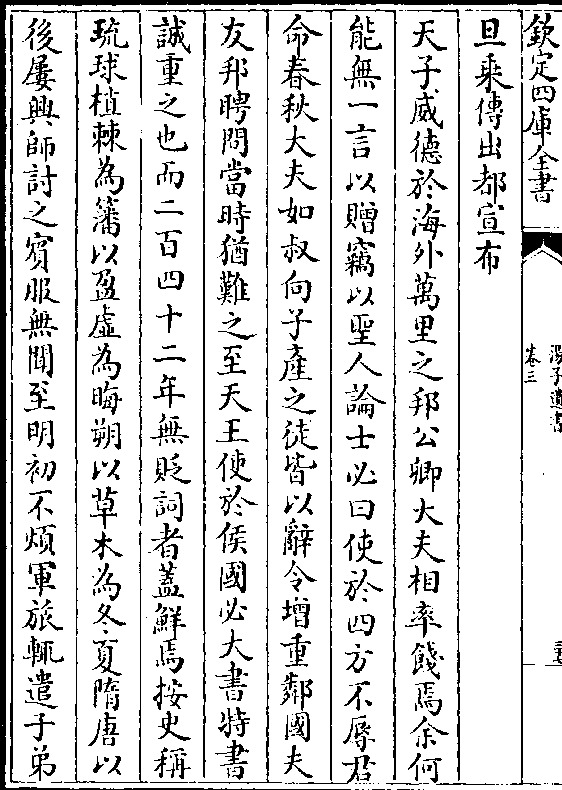 欽定四庫全書
湯子遺書
卷三
旦乘傳出都宣布
天子威德於海外萬里之邦公卿大夫相率餞焉余何
能無一言以贈竊以聖人論士必曰使於四方不辱君
命春秋大夫如叔向子產之徒皆以辭令增重鄰國夫
友邦聘問當時猶難之至天王使於侯國必大書特書
誠重之也而二百四十二年無貶詞者蓋鮮焉按史稱
琉球植棘為籓以盈虛為晦朔以草木為冬夏隋唐以
後屢興師討之賓服無聞至明初不煩軍旅輒遣子弟